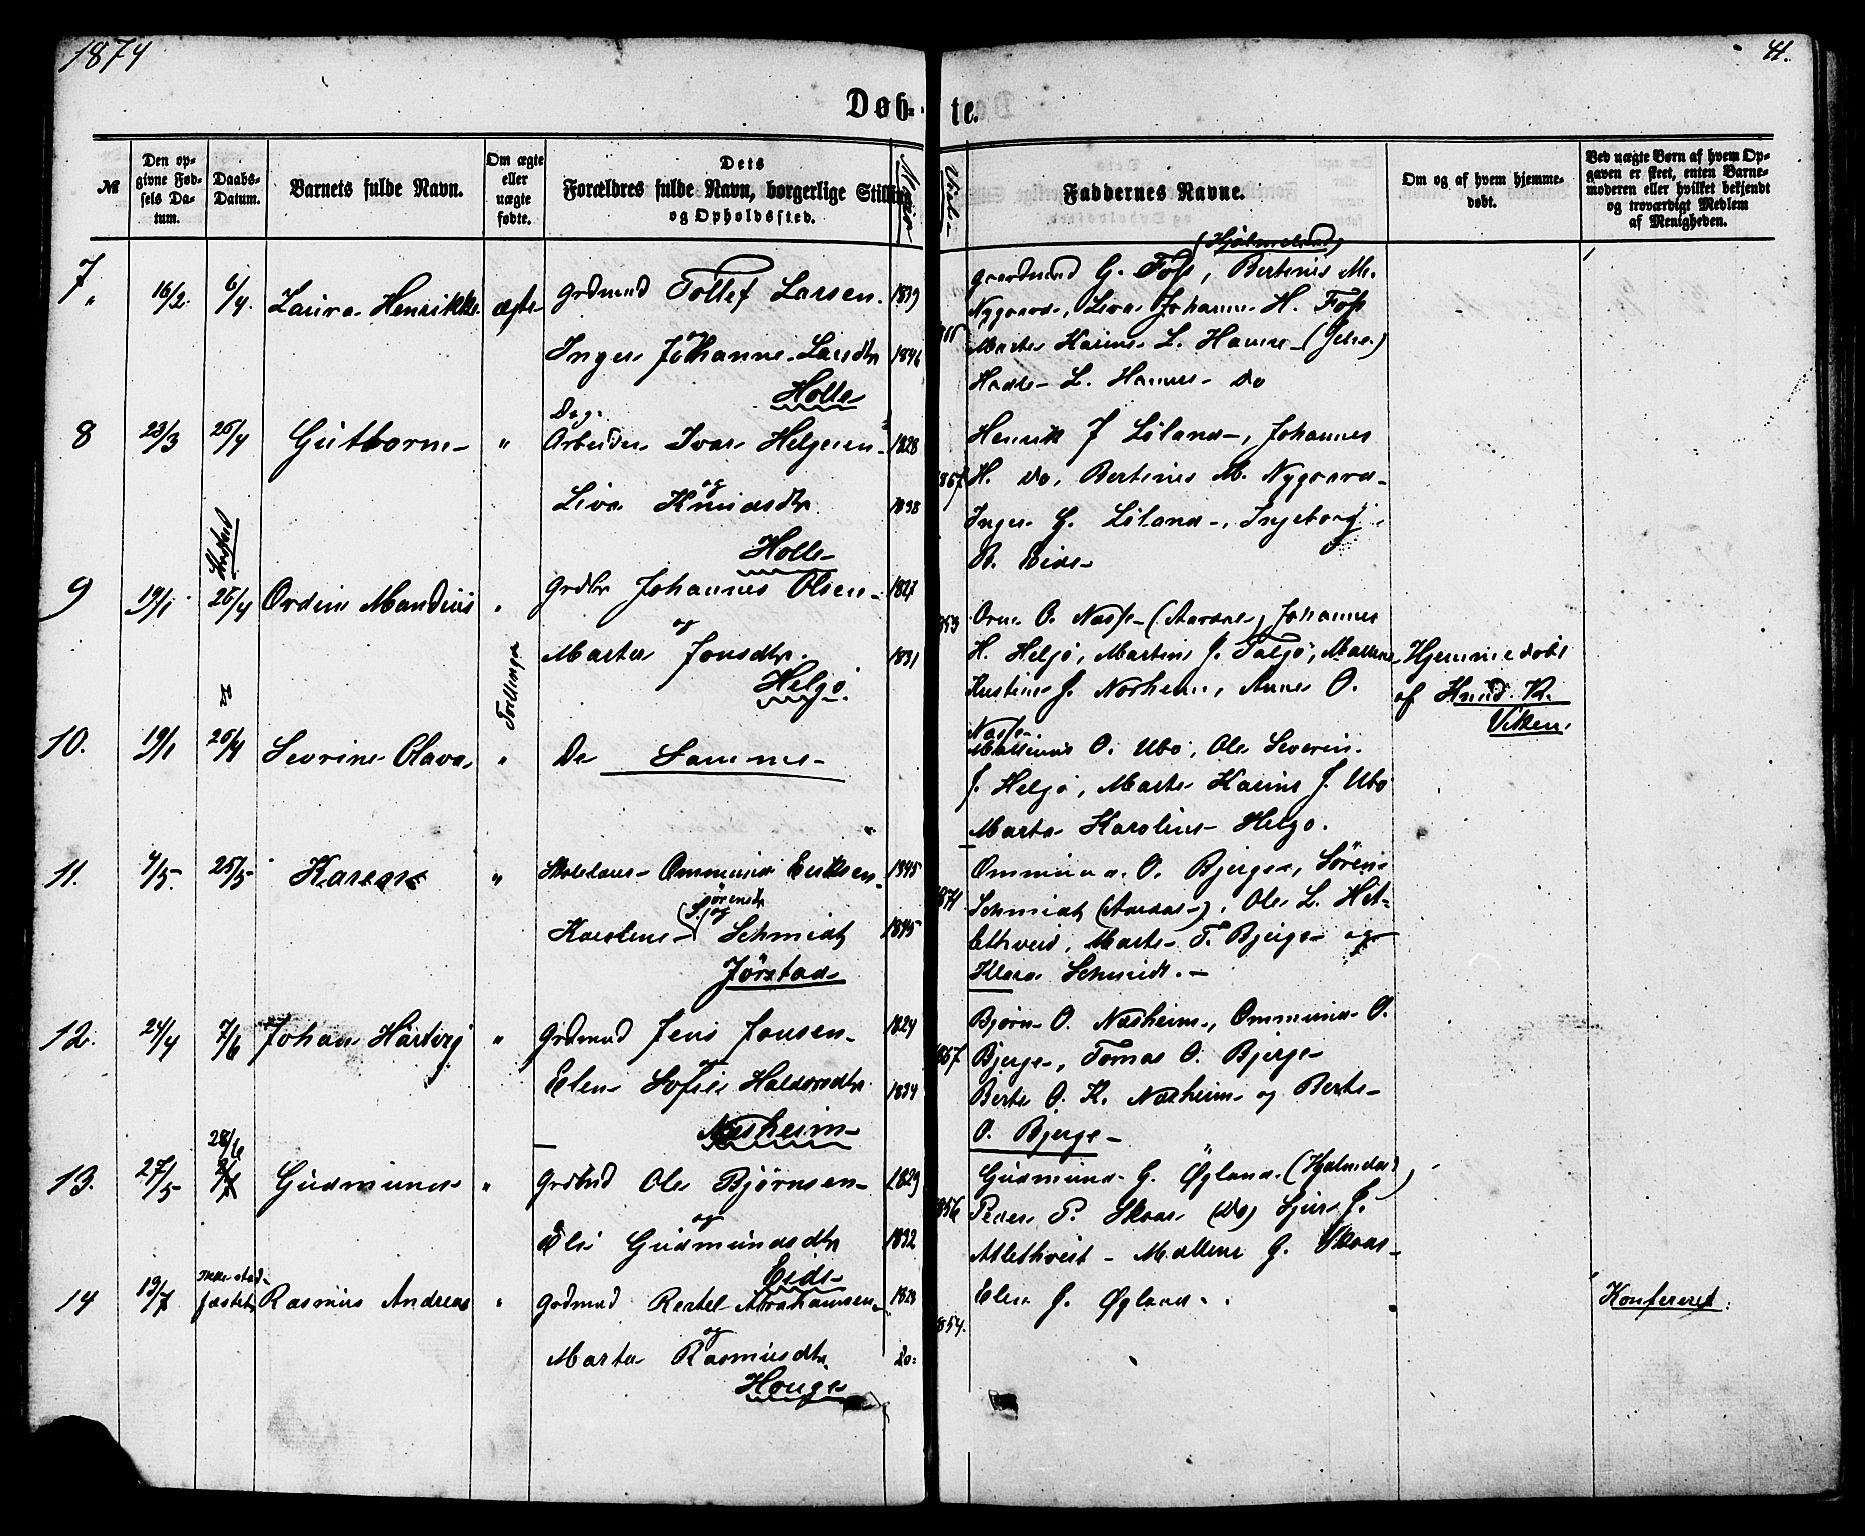 1874
41.
Døb-te.
№
Den opgivne Fødsels Datum.
Daabs-Datum.
Barnets fulde Navn.
Om ægte eller uægte fødte.
Dets
Forældres fulde Navn, borgerlige Stilling
og Opholdssted.
Faddernes Navne.
Om og af hvem hjemmedøbt.
Ved uægte Børn af hvem Opgaven er skeet, enten Barnemoderen eller hvilket bekjendt og troværdigt Medlem af Menigheden.
7 16/2 6/4 Laura Henrikke ægte Grdmnd Tollef Larsen 1839
Inger Johanne Larsdtr 1846
Holle
(Hjelmeland)
Gaardmnd G. Foss, Bertinus M.
Nygaard, Liva Johanne H. Foss
Marte Karine L. Hauge (Jelse)
L. do
8 23/3 25/4 Gutborm " Dag-
Arbeider Ivar Helgesen 1828
og
Liva Knudsdtr 1838
Holle
1867
Henrik J Løland, Johannes
H. do, Bertinus M. Nygaard
Inger G. Løland, Ingeborg
B. Eide
9 19/1 25/4 Ordin Mandius " Grdbr Johannes Olsen 1827
og
Marta Jonsdtr. 1831
Helgø.
Tvillinger
1853
Orm O. Næsse (Aardal) Johannes
H. Helgø, Martin J. Talgø, Mallene
Kristine J. Norheim, Anne O.
Næsse.
Hjemmedøbt
af Knud K.
Viken.
10. 19/1 25/4 Sevrine Olava " De Samme
O. Ubø, Ole Severin
J. Helgø, Marte Karine J. Ubø
Marta Karoline Helgø.
11. 4/5 25/5 " Skolelærer Ommund Eriksen 1845
(Sørensdtr
og
Karoline Schmidt 1845
Jørstad
1871
Ommund O. Bjerge, Søren
Schmidt (Aardal), Ole L. Hetlethveid, Marte T. Bjerge og
Klara Schmidt.
12. 24/4 7/6 Johan Hartvig " Grdmnd Jens Jonsen 1824
og
Elen Sofie Haldorsdtr 1834
Næsheim
1857
Bjørn O. Næsheim, Ommund O.
Bjerge, Tomas O. Bjerge
Berte O. K. Næsheim og Berte
O. Bjerge
13. 27/5 28/6 Gudmund " Ole Bjørnsen 1829
og
Eli Gudmundsdtr 1832
Eide
1856
Gudmund G. Øgland (Hjelmeland)
Peder P. Skaar (do) Sjur J.
Mallene G. Skaar
Elen J. Øgland
14 19/7 Rasmus Andreas " Grdmnd Abrahamsen 1828
og
Marta Rasmusdtr. do
Houge
1854.
Konfereret.